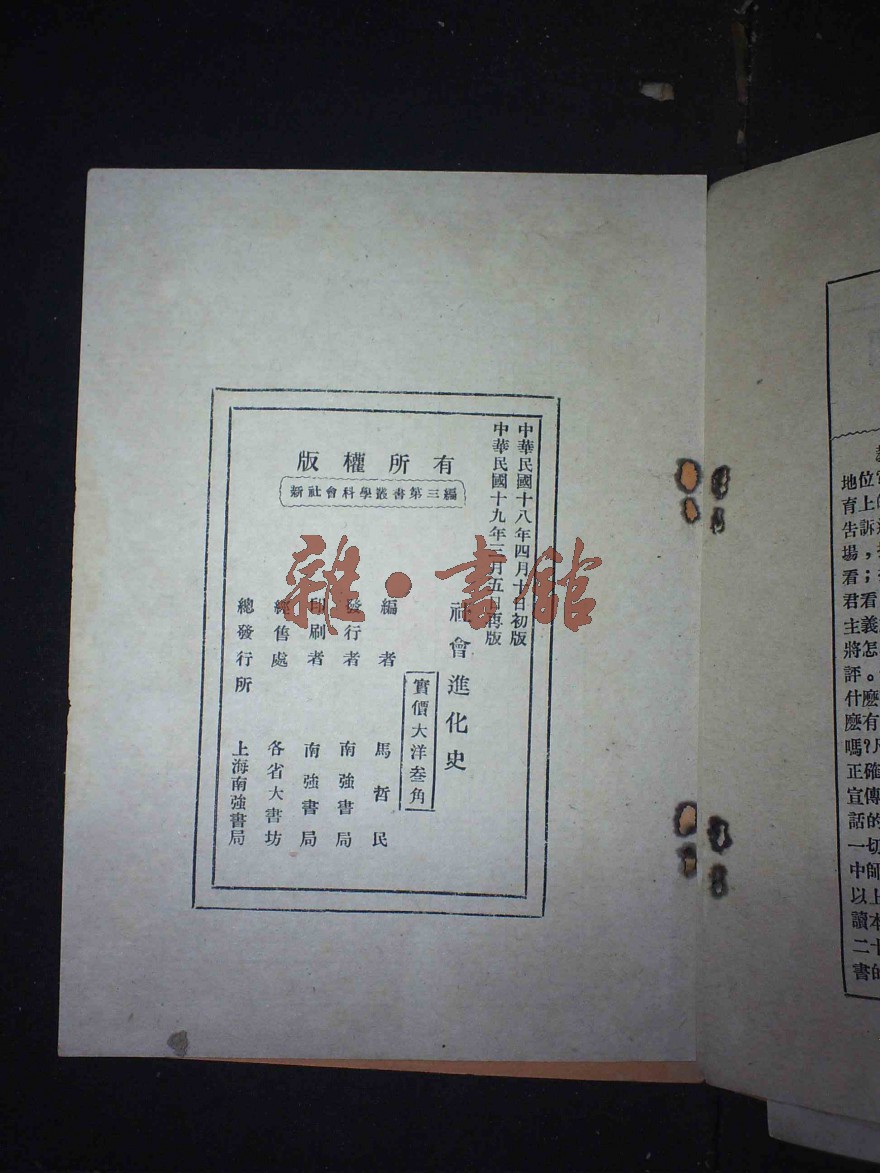 中華民國十八年四月十日初版
中華民國十九年三月五日再版
版權所有
新社會科學叢書第三編
社會進化史
實價大洋叁角
編者 馬哲民
發行者 南強書局
印刷者 南強書局
經售處 各省大書坊
總發行所 上海南強書局
雜·書館
地位
育上
告訴
場，
看；
君看
主義
將怎
評。
什麽
麽有
嗎？
正確
宣傳
話的
一切
中師
以上
讀本
二十
書的